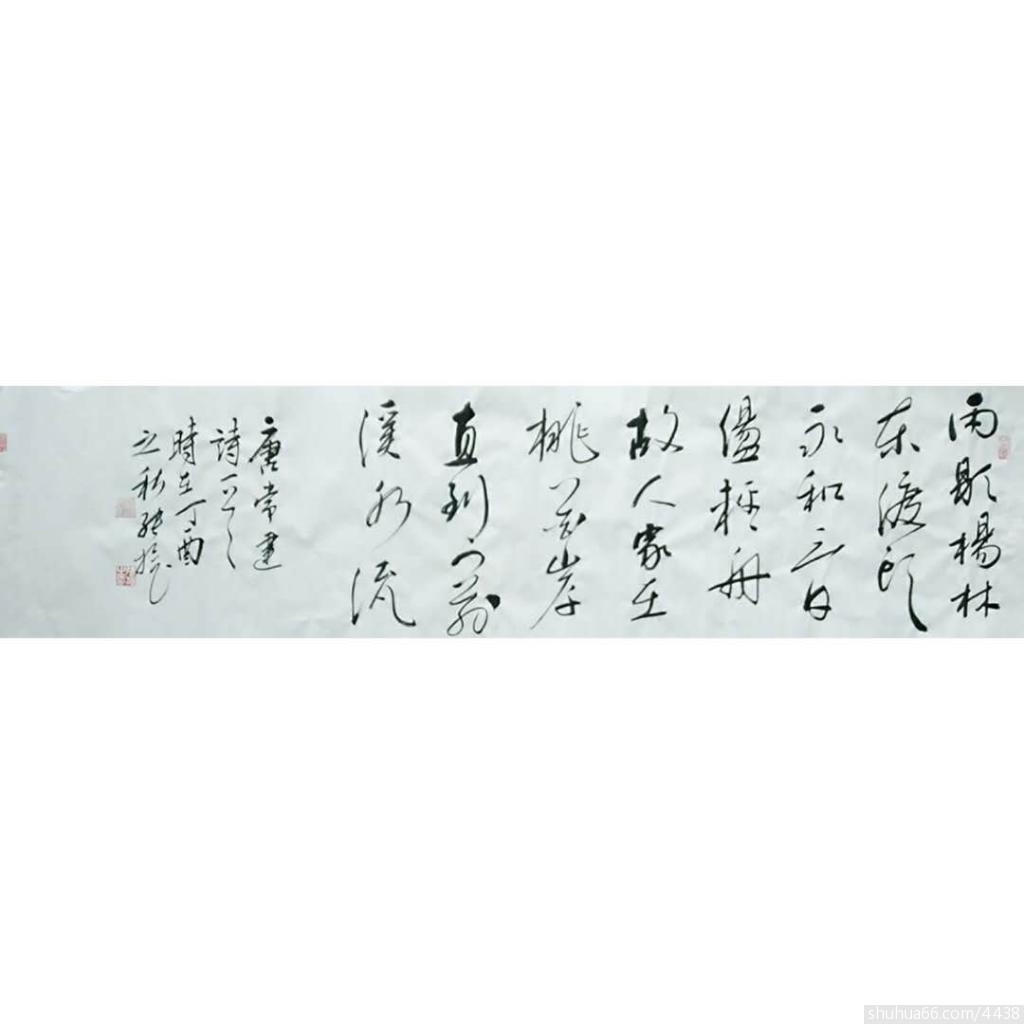 雨歇楊林
東渡頭
永和三日
盪輕舟
故人家在
桃花岸
直到門前
溪水流
唐常建
詩一首
時在丁酉
之秋
shuhua66.com/4438